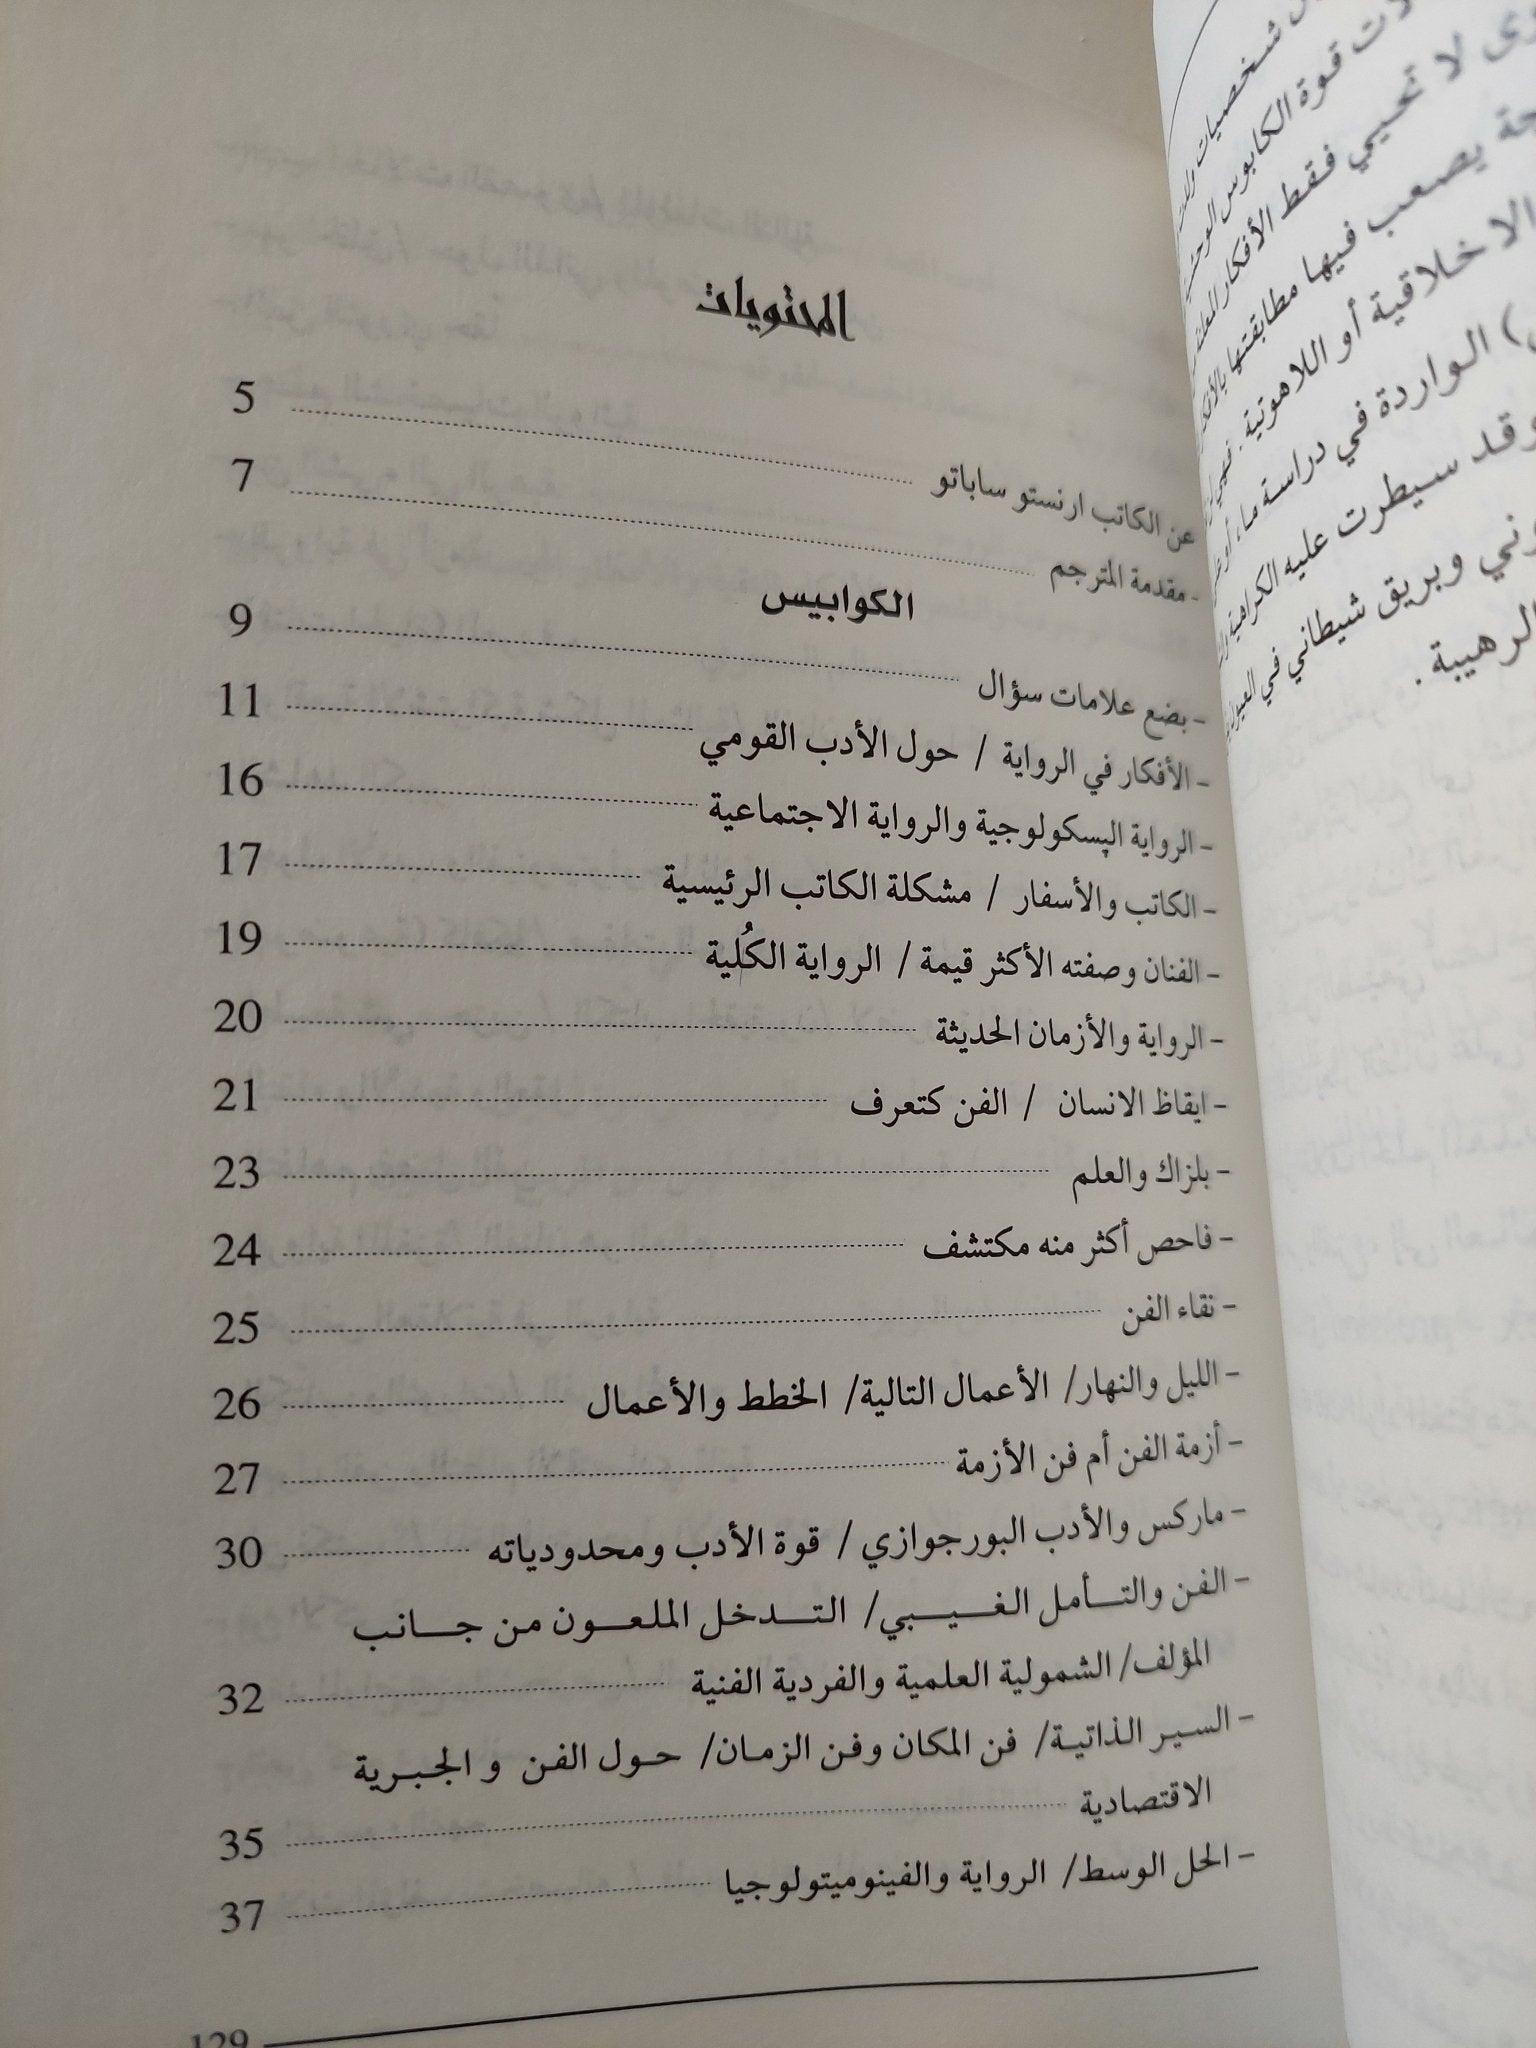 المحتويات
عن الكاتب ارنستو ساباتو 5
- مقدمة المترجم 7
الكوابيس
- بضع علامات سؤال 9
- الأفكار في الرواية / حول الأدب القومي 11
- الرواية الپسكولوجية والرواية الاجتماعية 16
- الكاتب والأسفار / مشكلة الكاتب الرئيسية 17
- الفنان وصفته الأكثر قيمة / الرواية الكُلية 19
- الرواية والأزمان الحديثة 20
- ايقاظ الانسان / الفن كتعرف 21
- بلزاك والعلم 23
- فاحص أكثر منه مكتشف 24
- نقاء الفن 25
- الليل والنهار/ الأعمال التالية/ الخطط والأعمال 26
- أزمة الفن أم فن الأزمة 27
- ماركس والأدب البورجوازي / قوة الأدب ومحدودياته 30
- الفن والتأمل الغيبي/ التدخل الملعون من جانب
المؤلف/ الشمولية العلمية والفردية الفنية 32
- السير الذاتية/ فن المكان وفن الزمان/ حول الفن و الجبرية
الاقتصادية 35
- الحل الوسط/ الرواية والفينوميتولوجيا 37
129
شخصيات
قوة الكابوس
لا تحيي فقط الأفكار
يصعب فيها مطابقتها
الاخلاقية أو اللاهوتية.
الواردة في دراسة ما، أو
وقد سيطرت عليه الكراهية
وبريق شيطاني في العيون
الرهيبة.